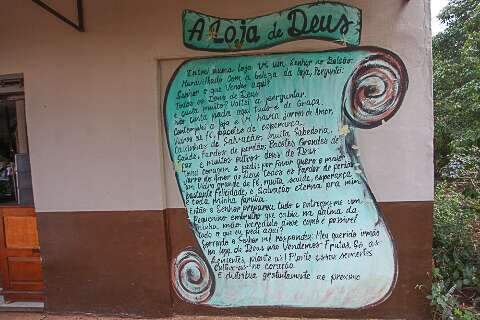 A Loja de Deus
Entrei numa loja, vi um Senhor no balcão.
Maravilhado com a beleza da loja, perguntei:
Senhor o que vende aqui?
Todos os Dons de Deus.
E custa muito? Voltei a perguntar.
Não custa nada aqui tudo é de Graça.
Contemplei a loja e vi havia jarros de Amor,
vidros de Fé, pacotes de esperança,
Caixinhas de Salvação, muita Sabedoria,
Saúde, Fardos de perdão, Pacotes Grandes de
Paz e muitos outros dons de Deus
Tomei coragem e pedi: por favor quero o maior
Jarro do Amor de Deus Todos os Fardos de perdão,
um vidro grande de Fé, muita saúde, esperança,
bastante felicidade, e Salvação eterna pra mim
e toda minha família.
Então o Senhor preparou tudo e entregou-me um
Pequenino embrulho que cabia na palma da
minha mão. Incrédulo disse como é possível
Tudo o que eu pedi aqui?
Sorrindo o Senhor me respondeu: Meu querido irmão
na loja de Deus não Vendemos Frutas. Só as
Sementes, plante as! Plante essas sementes
Cultive-as no coração
E distribua gratuitamente ao próximo